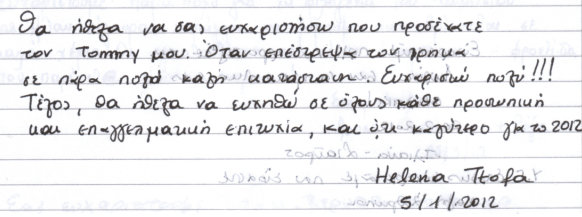 Θα ήθελα να σας ευχαριστήσω που προσέχατε
τον Tommy μου. Όταν επέστρεψα τον βρήκα
σε πάρα πολύ καλή κατάσταση. Ευχαριστώ πολύ!!!
Τέλος, θα ήθελα να ευχηθώ σε όλους κάθε προσωπική
και επαγγελματική επιτυχία, και ότι καλύτερο για το 2012
Helena Ttofa
5/1/2012